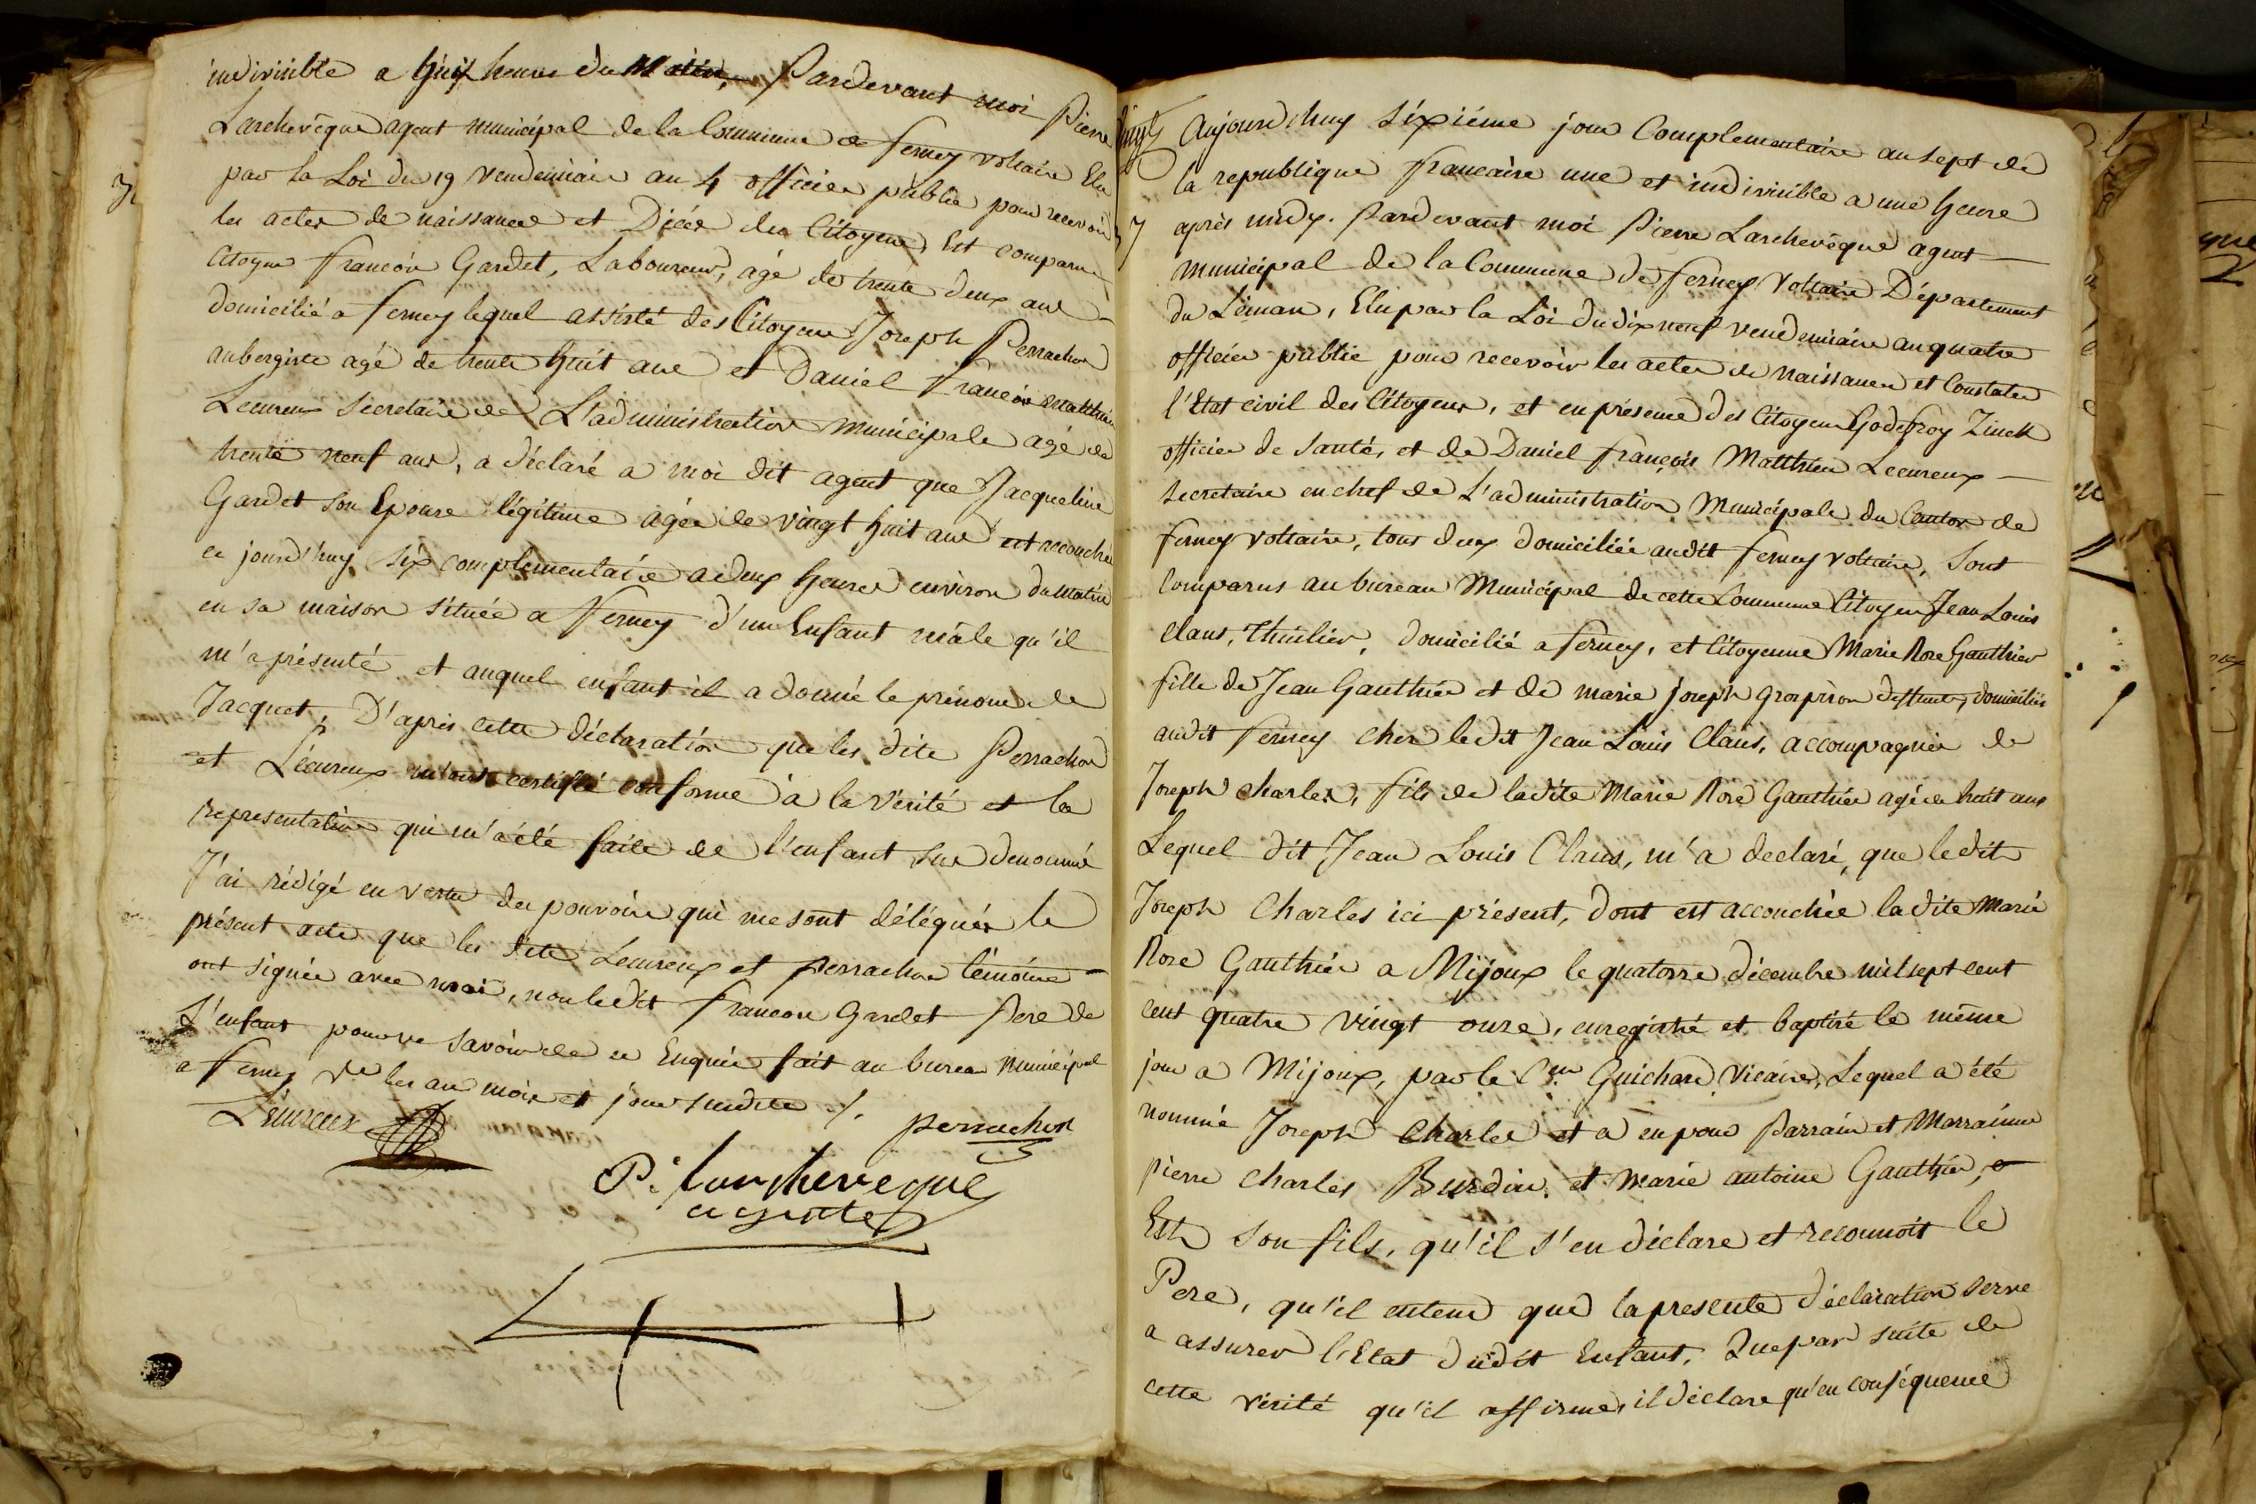 indivisible a huit heures du Matin, Pardevant moi Pierre
Larchevêque agent municipal de la Commune de ferney voltaire Elu
par la Loi du 19 vendemiaire an 4 officier public pour recevoir
les actes de naissance et Décès des Citoyens, Est comparu
Citoyen francois Gardet, Laboureur, agé de trente deux ans
domicilié a ferney lequel assisté des Citoyens Joseph Perrachon
aubergiste agé de trente huit ans et Daniel francois Matthieu
Lecureux Secretaire de L'administration municipale agé de
trente neuf ans, a déclaré a moi dit agent que Jacqueline
Gardet son Epouse légitime agée de vingt huit ans est accouchée
ce jourd'huy six complementaire a deux heures environ du matin
en sa maison située a Ferney d'un Enfant mâle qu'il
m'a présenté et auquel enfant il a donné le prénom de
Jacques, D'après cette déclaration que les dits Perrachon
et Lécureux m'ont certifié conforme à la vérité et la
representation qui m'a été faite de l'enfant sus denommé
J'ai rédigé en vertu des pouvoirs qui me sont délégués le
présent acte que les dits Lecureux et Perrachon témoins
ont signés avec moi, non ledit francois Gardet Pere de
L'enfant pour ne savoir de ce Enquis fait au bureau municipal
a ferney Vre les an mois et jour susdits ./.
Lécureux Perrachon
P. Larcheveque
agente
vingt
7
Aujourdhuy sixiéme jour Complementaire an sept de
la republique francaise une et indivisible a une heure
après midy. Pardevant moi Pierre Larchevêque agent
municipal de la Commune de ferney Voltaire Département
du Léman, Elu par la Loi du dix neuf vendemiaire an quatre
officier public pour recevoir les actes de naissance et Constater
l'Etat civil des Citoyens, et en présence des Citoyens Godefroy Zinck
officier de santé, et de Daniel françois Matthieu Lecureux
Secretaire en chef de L'administration Municipale du Canton de
ferney voltaire, tous deux domiciliés audit ferney voltaire, Sont
Comparus au bureau Municipal de cette Commune Citoyen Jean Louis
Claus, Thuilier, domicilié a ferney, et Citoyenne Marie Rose Gauthier
fille de Jean Gauthier et de marie joseph Grospiron deffunts, domiciliée
audit ferney chez ledit Jean Louis Claus, accompagnée de
Joseph charles, fils de ladite Marie Rose Gauthier agé de huit ans
Lequel dit Jean Louis Claus, m'a declaré, que ledit
Joseph Charles ici présent, dont est accouchée la dite Marie
Rose Gauthier a Mijoux le quatorze décembre mil sept cent
cent quatre vingt onze, enregistré et baptisé le même
jour a Mijoux, par le Cen Guichard Vicaire, Lequel a été
nommé Joseph Charles et a eu pour Parrain et Marraine
pierre charles Burdin, et marie antoine Gauthier,
Est son fils, qu'il s'en déclare et reconnoit le
Pere, qu'il entend que la presente déclaration serve
a assurer l'Etat dudit Enfant. Que par suite de
cette vérité qu'il affirme, il déclare qu'en conséquence